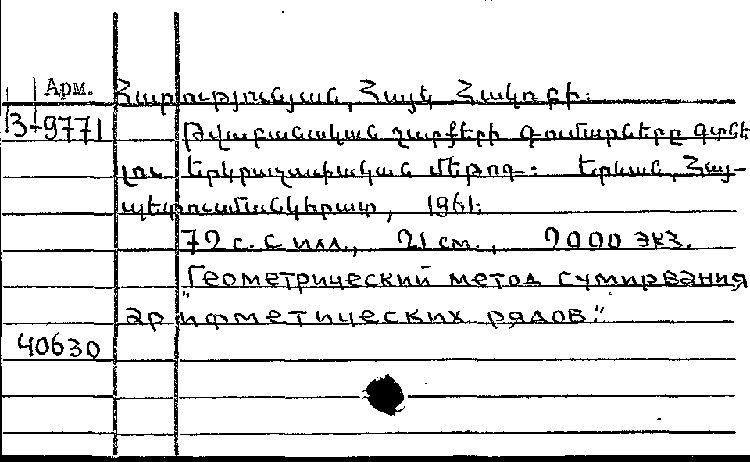 Арм. Հարությունյան, Հայկ Հակոբի:
13-9771 Թվաբանական շարքերի գումարները գտնե
լու երկրաչափական մեթոդ: Երևան, Հայ-
պետուսմանկհրատ, 1961:
72 с. с илл., 21 см., 2000 экз.
"Геометрический метод сумирвания
арифметических рядов."
40630